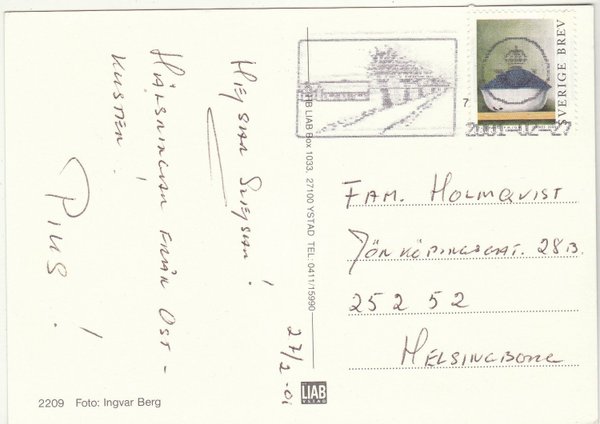 HEJSAN SVEJSAN!
HÄLSNINGAR FRÅN ÖST-
KUSTEN.
PIUS!
27/2 -01
2209 Foto: Ingvar Berg
LIAB Box 1033, 27100 YSTAD TEL: 0411/15990
LIAB
YSTAD
7
2001-02-27
SVERIGE BREV
FAM. HOLMQVIST
JÖNKÖPINGSGAT. 28B.
252 52
HELSINGBORG